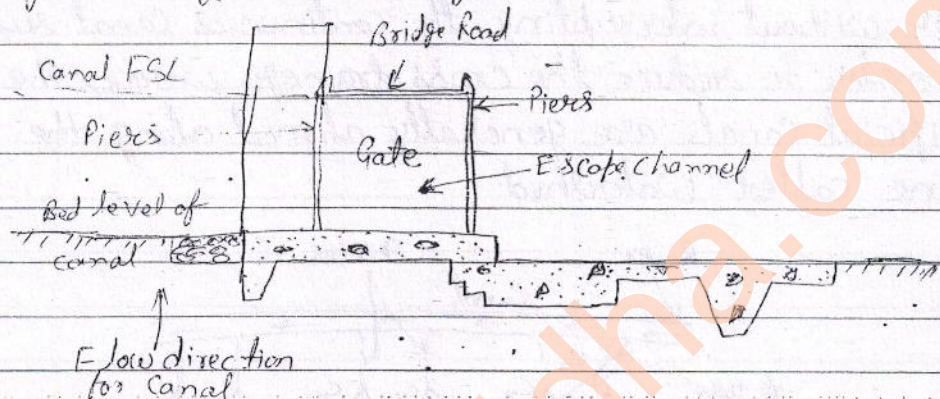 Bridge Road
Canal FSL
Piers
Piers
Gate
Escape Channel
Bed level of
canal
Flow direction
for Canal
dha.com